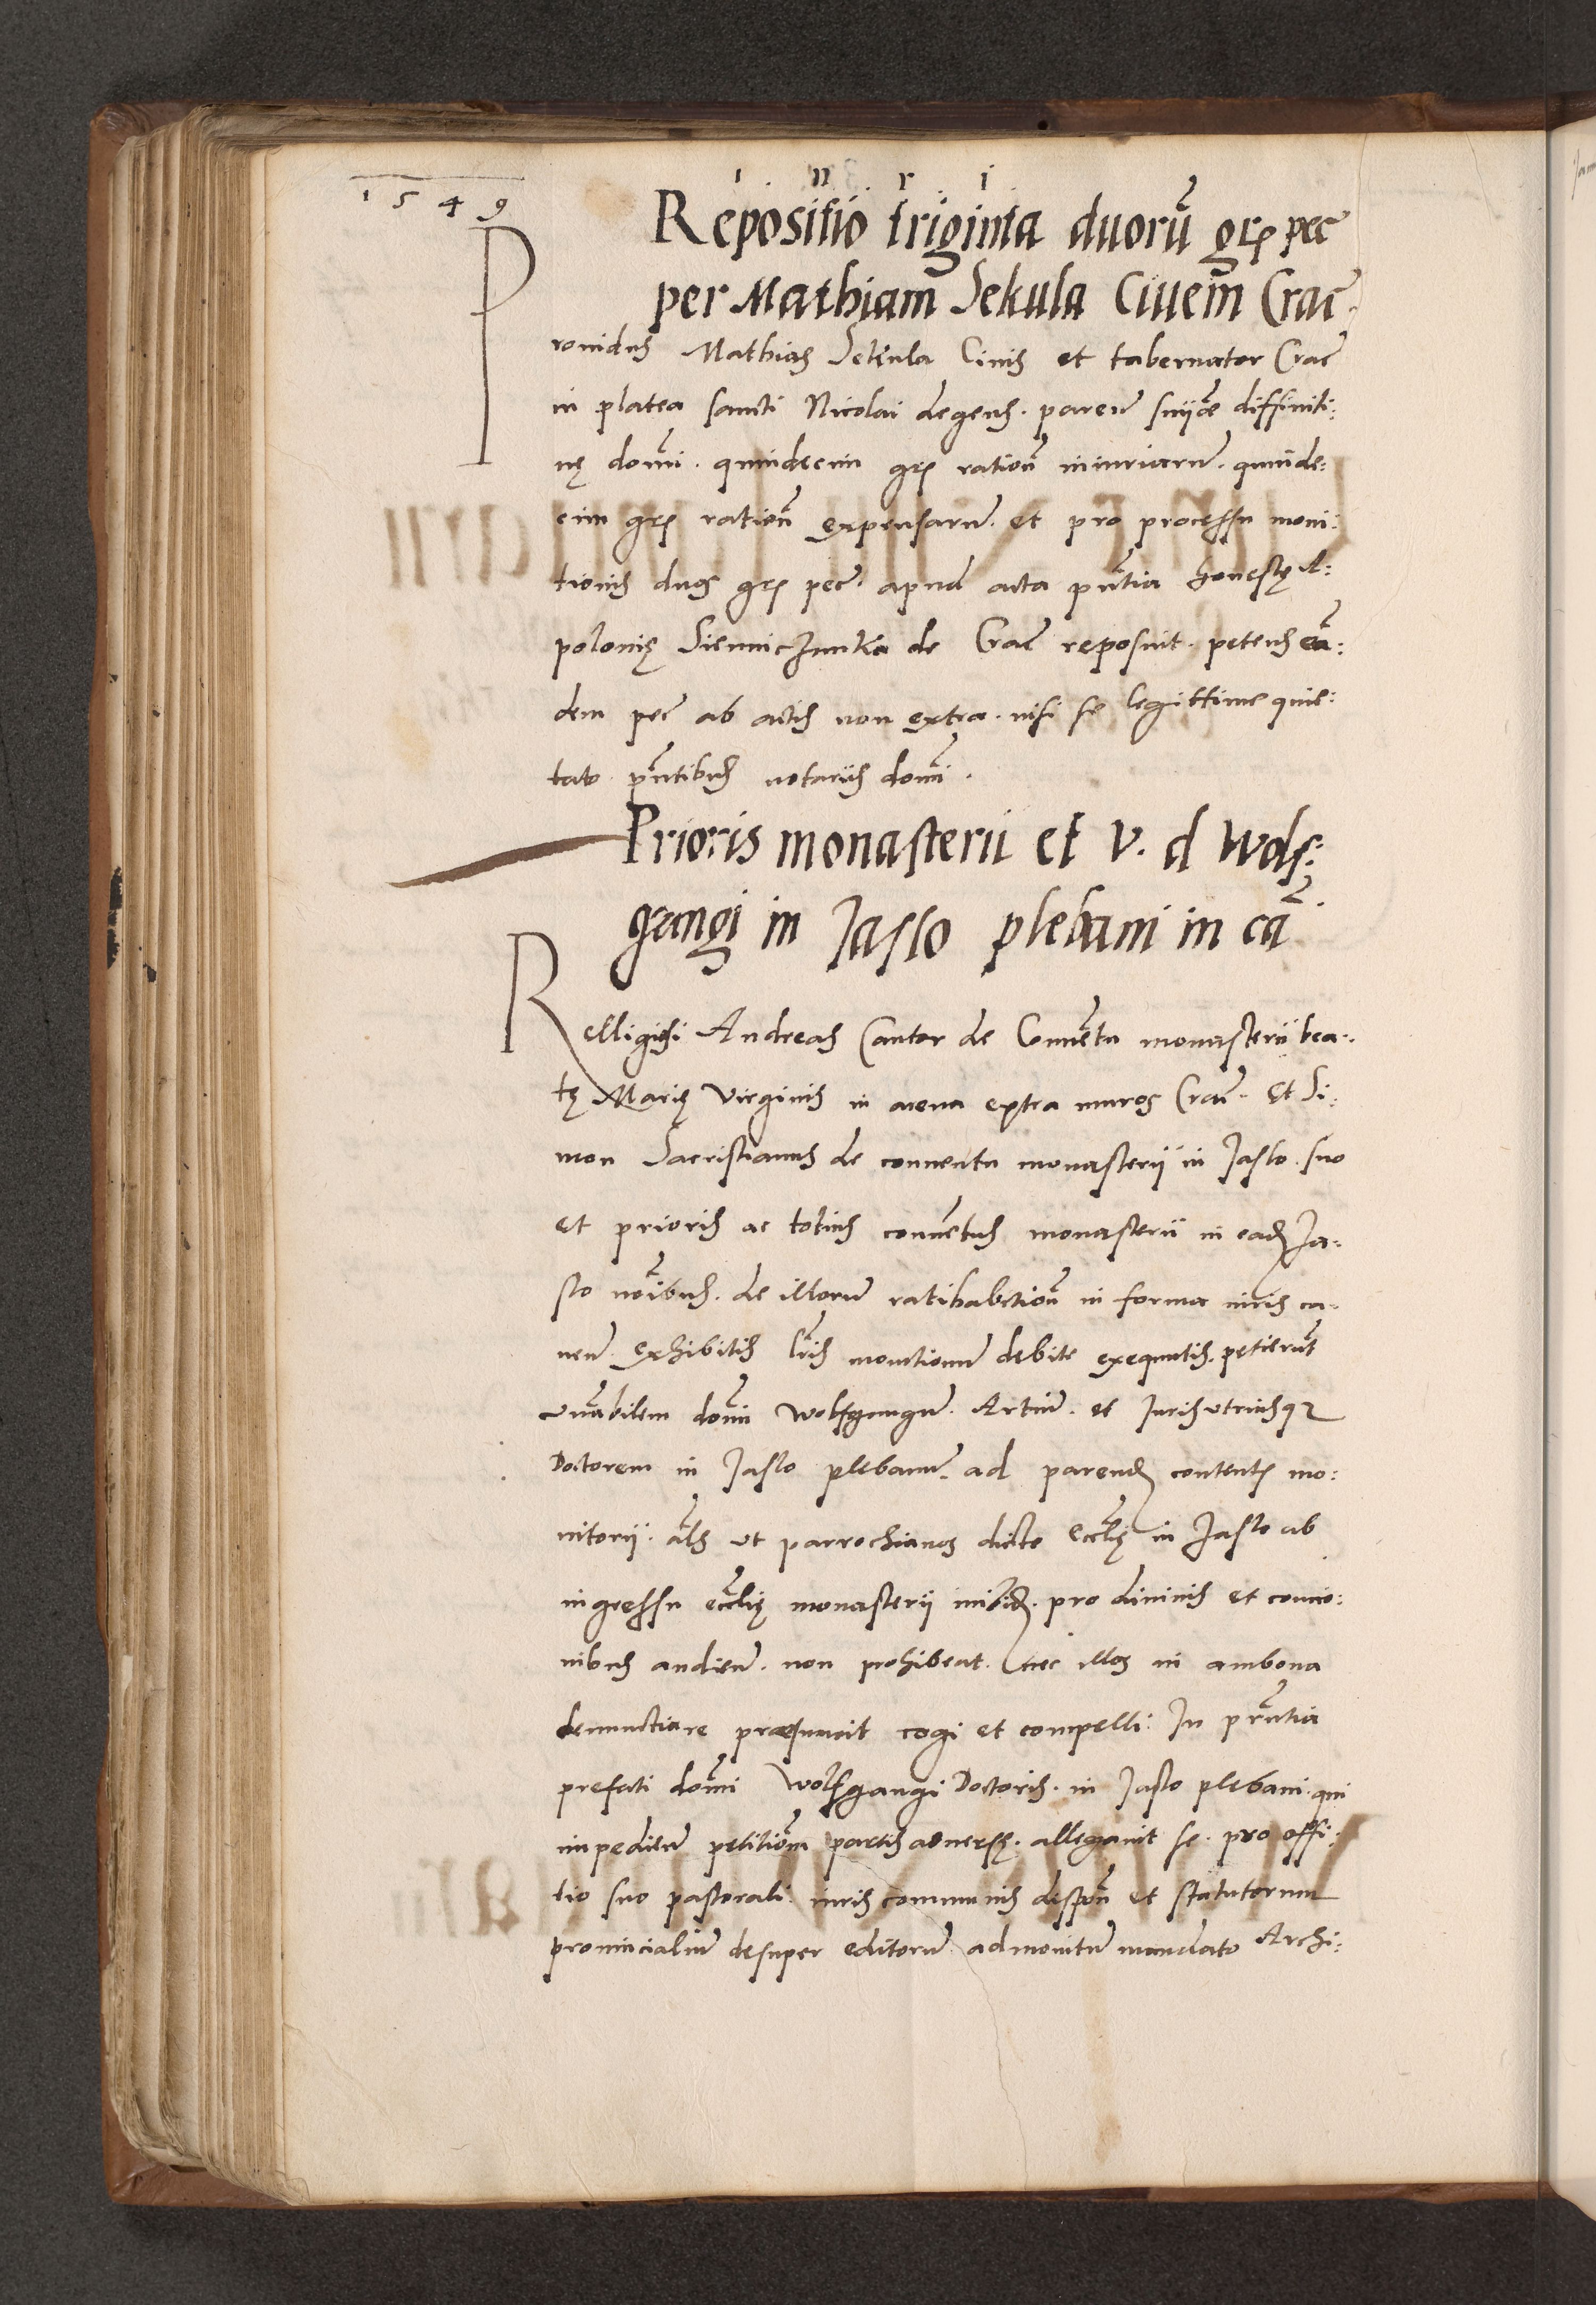 1549
i n r i
Repositio triginta duorũ grs pec̃
per Mathiam Sekula Ciuem̃ Crac̃
Prouidus Mathias Sekula Ciuis et tabernator Crac̃
in platea sancti Nicolai degens. paren̄ sñiæ diffiniti:
uę domĩ. quindecim grs ration̄ iniuriarū. quinde:
cim grs ration̄ expensarū. et pro processu moni:
tionis duos grs pec̃. apud acta pñtia honestę A:
polonię Siennic de Crac̃ reposuit. petens eã:
dem pec̃ ab actis non extra. nisi se legittime quie:
tato pñtibus notariis domĩ.
Prioris monasterii et V. d Wolf:
gangi in Jaslo plebani in cã.
Relligiosi Andreas Cantor de Conuẽtu monasterii bea:
tę Marię Virginis in arena extra muros Crac̃. Et Si:
mon Sacristianus de conuentu monasterij in Jaslo. suo
et prioris ac totius conuẽtus monasterii in ead Ja:
slo noĩbus. de illorum ratihabition̄ in forma iuris ca:
uen̄. exhibitis lr̃is monitionum debite exequutis. petierũt
vnãbilem domĩ Wolfgangum. Artiū. et Juris vtriusq3
Doctorem in Jaslo plebanum. ad parend contentis mo:
nitorij. als ut parrochianos dicte Eccl̃ię in Jaslo ab
ingressu eccl̃ię monasterij inibid. pro diuinis et concio:
nibus audien̄. non prohibeat. nec illos in ambona
denunctiare præsumat cogi et compelli: In pr̃ntia
prefati domĩ Wolfgangi Doctoris. in Jaslo plebani. qui
impedien̄ petitiõm partis aduersę. allegauit se. pro offi:
tio suo pastorali. iuris communis dispõn et statutorum
prouincialium desuper editorum admonitum mandato Archi: